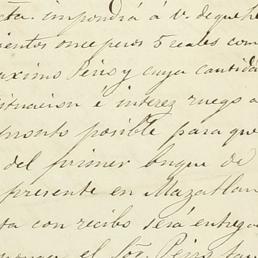 ta. impondrá á V. de que he
cientos once pesos 5 reales com
aximo Peiro y cuya cantida
situacion é interez ruego a
posible para que
del primer buque de
presente en Mazatlan
ta con recibo será entrega
el Sor. Peiro